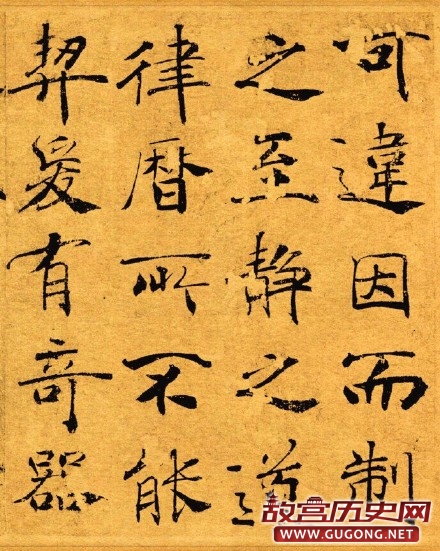 可違因而制
之至静之道
律暦所不能
契爰有奇器
故宫历史网
WWW.GUGONG.NET